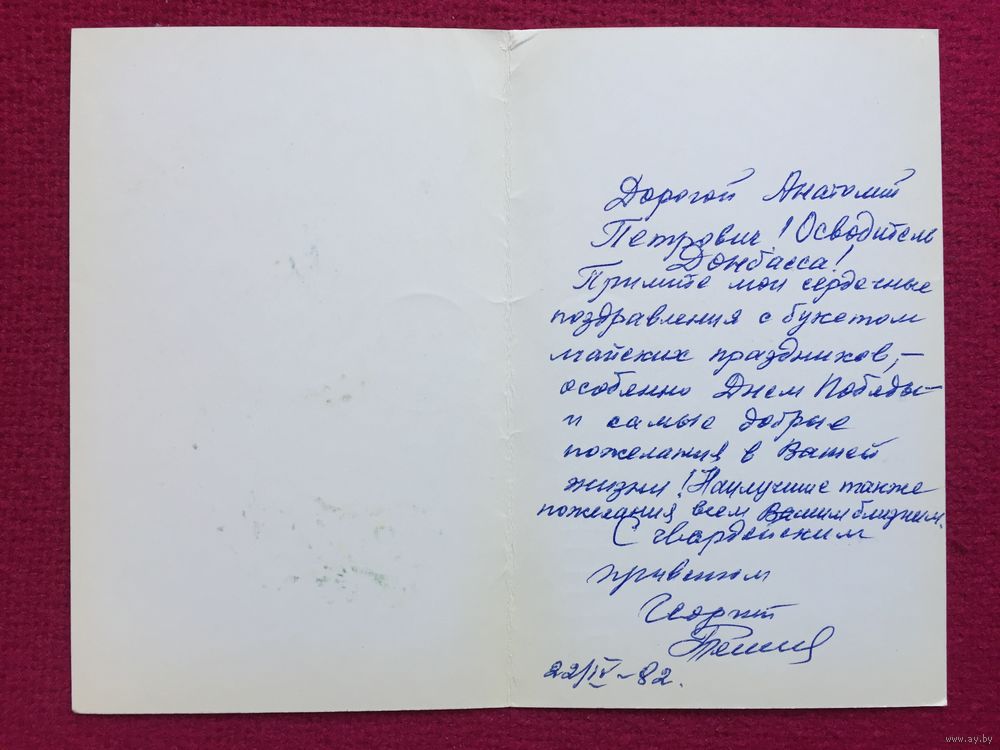 Дорогой Анатолий
Петрович! Осводитель
Донбасса!
Примите мои сердечные
поздравления с букетом
майских праздников, –
особенно Днем Победы –
и самые добрые
пожелания в Вашей
жизни! Наилучшие также
пожелания всем Вашим близким.
С гвардейским
приветом
Георгий
22/IV – 82.
www.ay.by